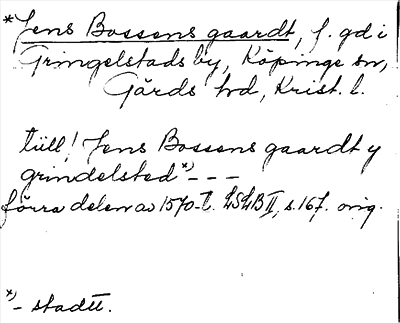 *Jens Bossens gaardt, f. gd i
Gringelstads by, Köpinge sn,
Gärds hd, Krist. l.
till! Jens Bossens gaardt y
grindelsted *) - - -
förra delen av 1570-t. LSLB II, s. 167. orig.
*) - stadtt.